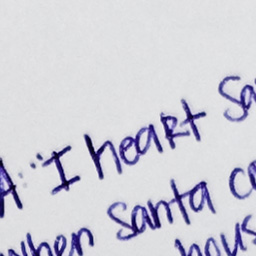 A: I heart Sa
when santa co
hous